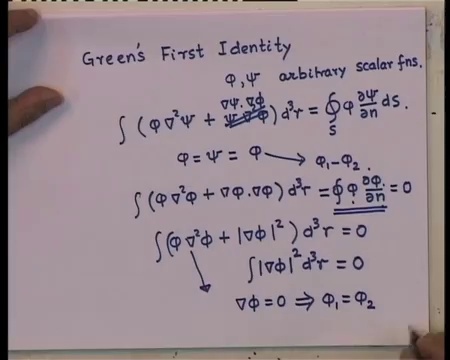 Green's First Identity
φ, ψ arbitrary scalar fns.
∇ψ.∇φ
∫ (φ∇²ψ + ψ∇²φ) d³r = ∮_S φ ∂ψ/∂n dS.
φ = ψ = φ → φ₁-φ₂.
∫ (φ∇²φ + ∇φ.∇φ) d³r = ∮ φ. ∂φ/∂n = 0
∫(φ∇²φ + |∇φ|²) d³r = 0
∫|∇φ|² d³r = 0
∇φ = 0 ⇒ φ₁ = φ₂